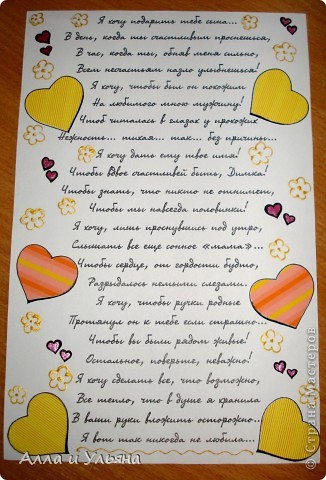 Я хочу подарить тебе сына...
В день, когда ты счастливым проснешься,
В час, когда ты, обняв меня сильно,
Всем несчастьям назло улыбнешься!
Я хочу, чтобы был он похожим
На любимого мною мужчину!
Чтоб читалась в глазах у прохожих
Нежность... тихая... так... без причины...
Я хочу дать ему твое имя!
Чтобы вдвое счастливей быть, Димка!
Чтобы знать, что никто не отнимет,
Чтобы мы навсегда половинки!
Я хочу, лишь проснувшись под утро,
Слышать все еще сонное «мама»...
Чтобы сердце, от гордости будто,
Разрыдалось немыми слезами.
Я хочу, чтобы ручки родные
Протянул он к тебе если страшно...
Чтобы вы были рядом живые!
Остальное, поверьте, неважно!
Я хочу сделать все, что возможно,
Все тепло, что в душе я хранила
В ваши руки вложить осторожно...
Я вот так никогда не любила...
Алла и Ульяна
© Страна Мастеров